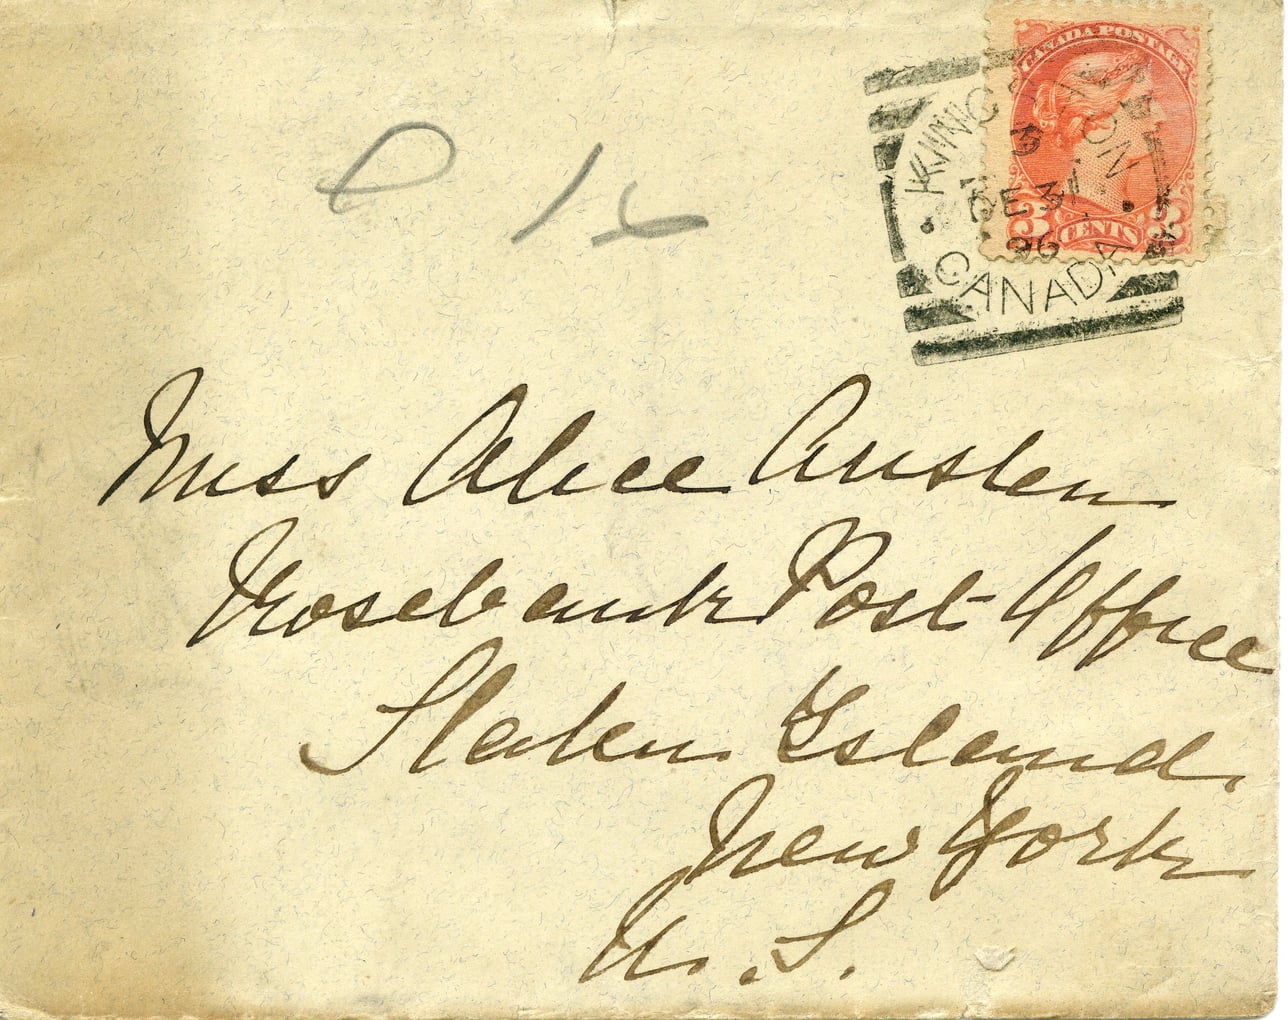 CANADA POSTAGE
3 CENTS 3
KINGSTON
3
DE 31
96
CANADA
Miss Alice Austen
Rosebank Post Office
Staten Island,
New York
U. S.